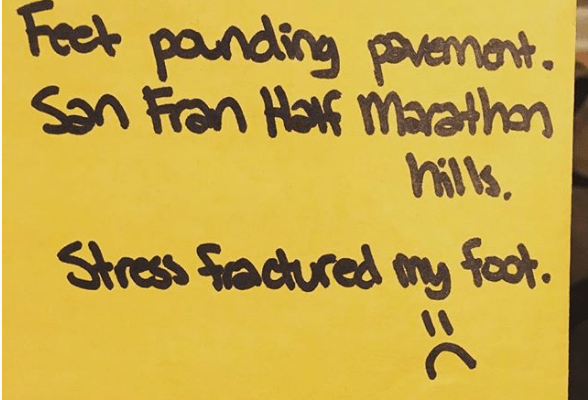 Feet pounding pavement.
San Fran Half Marathon
hills.
Stress fractured my foot.